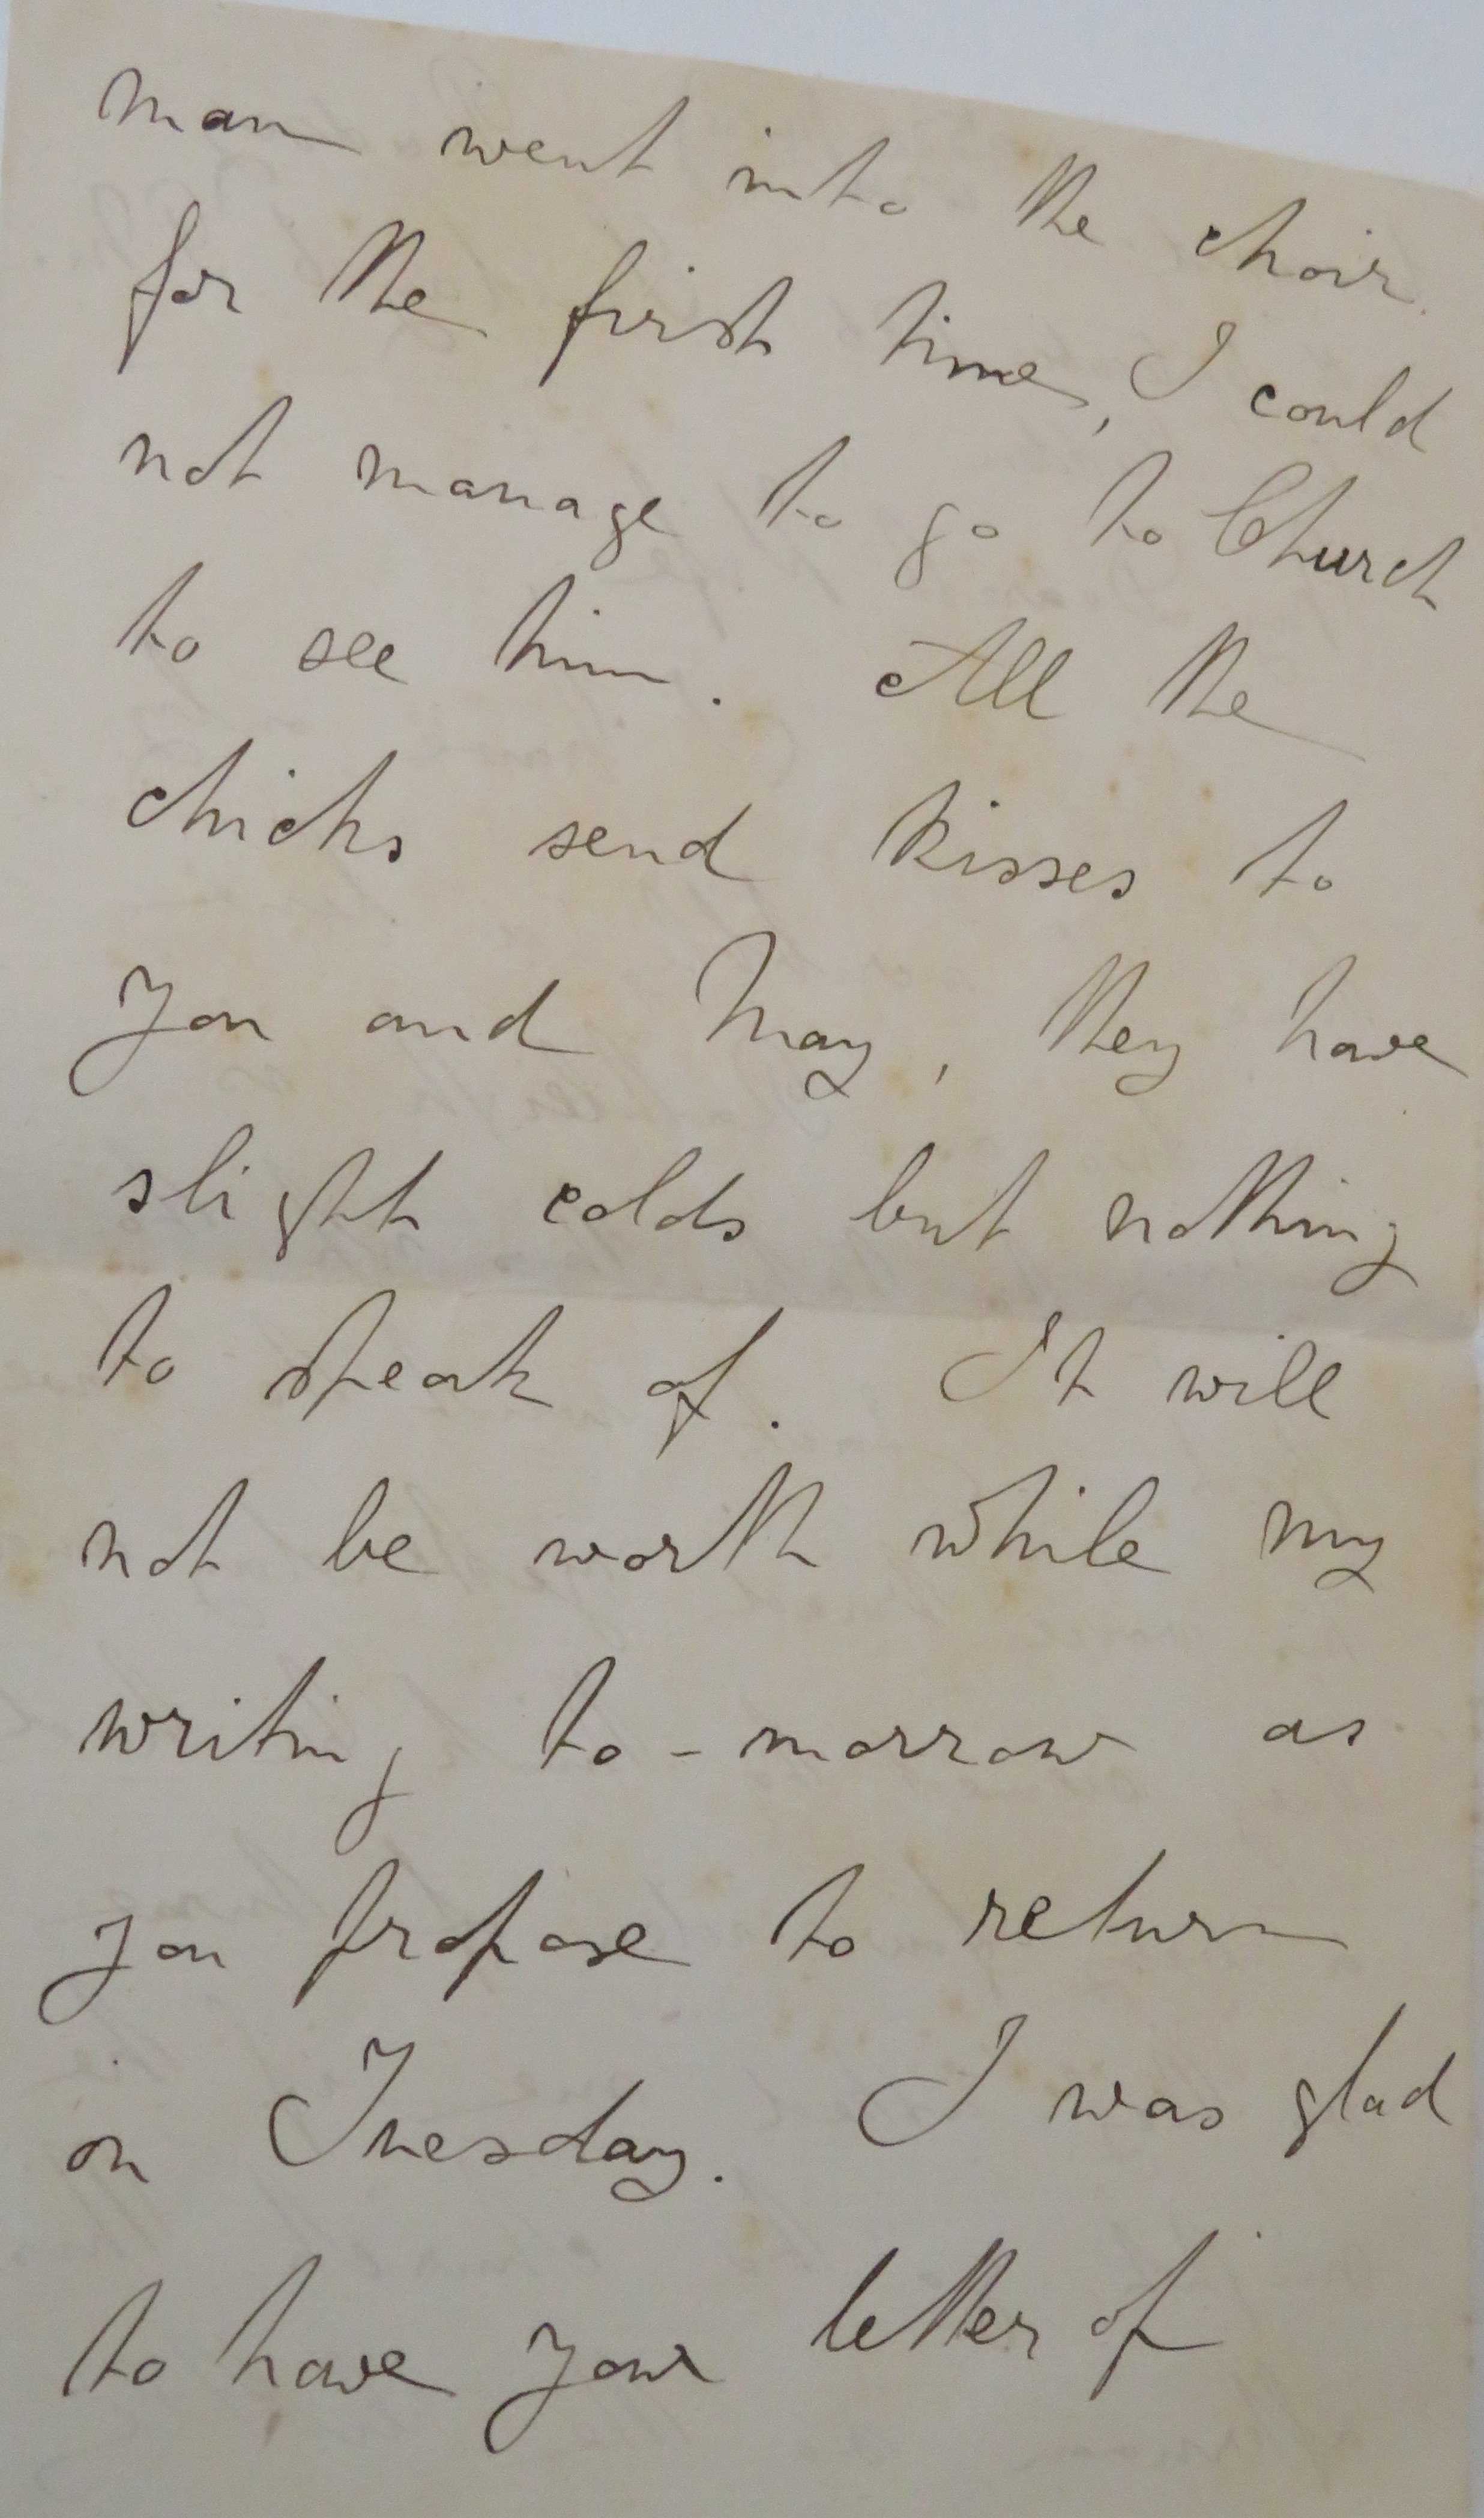 man went into the choir
for the first time, I could
not manage to go to Church
to see him. All the
chicks send kisses to
you and May, they have
slight colds but nothing
to speak of. It will
not be worth while my
writing to-morrow as
you propose to return
on Tuesday. I was glad
to have your letter of